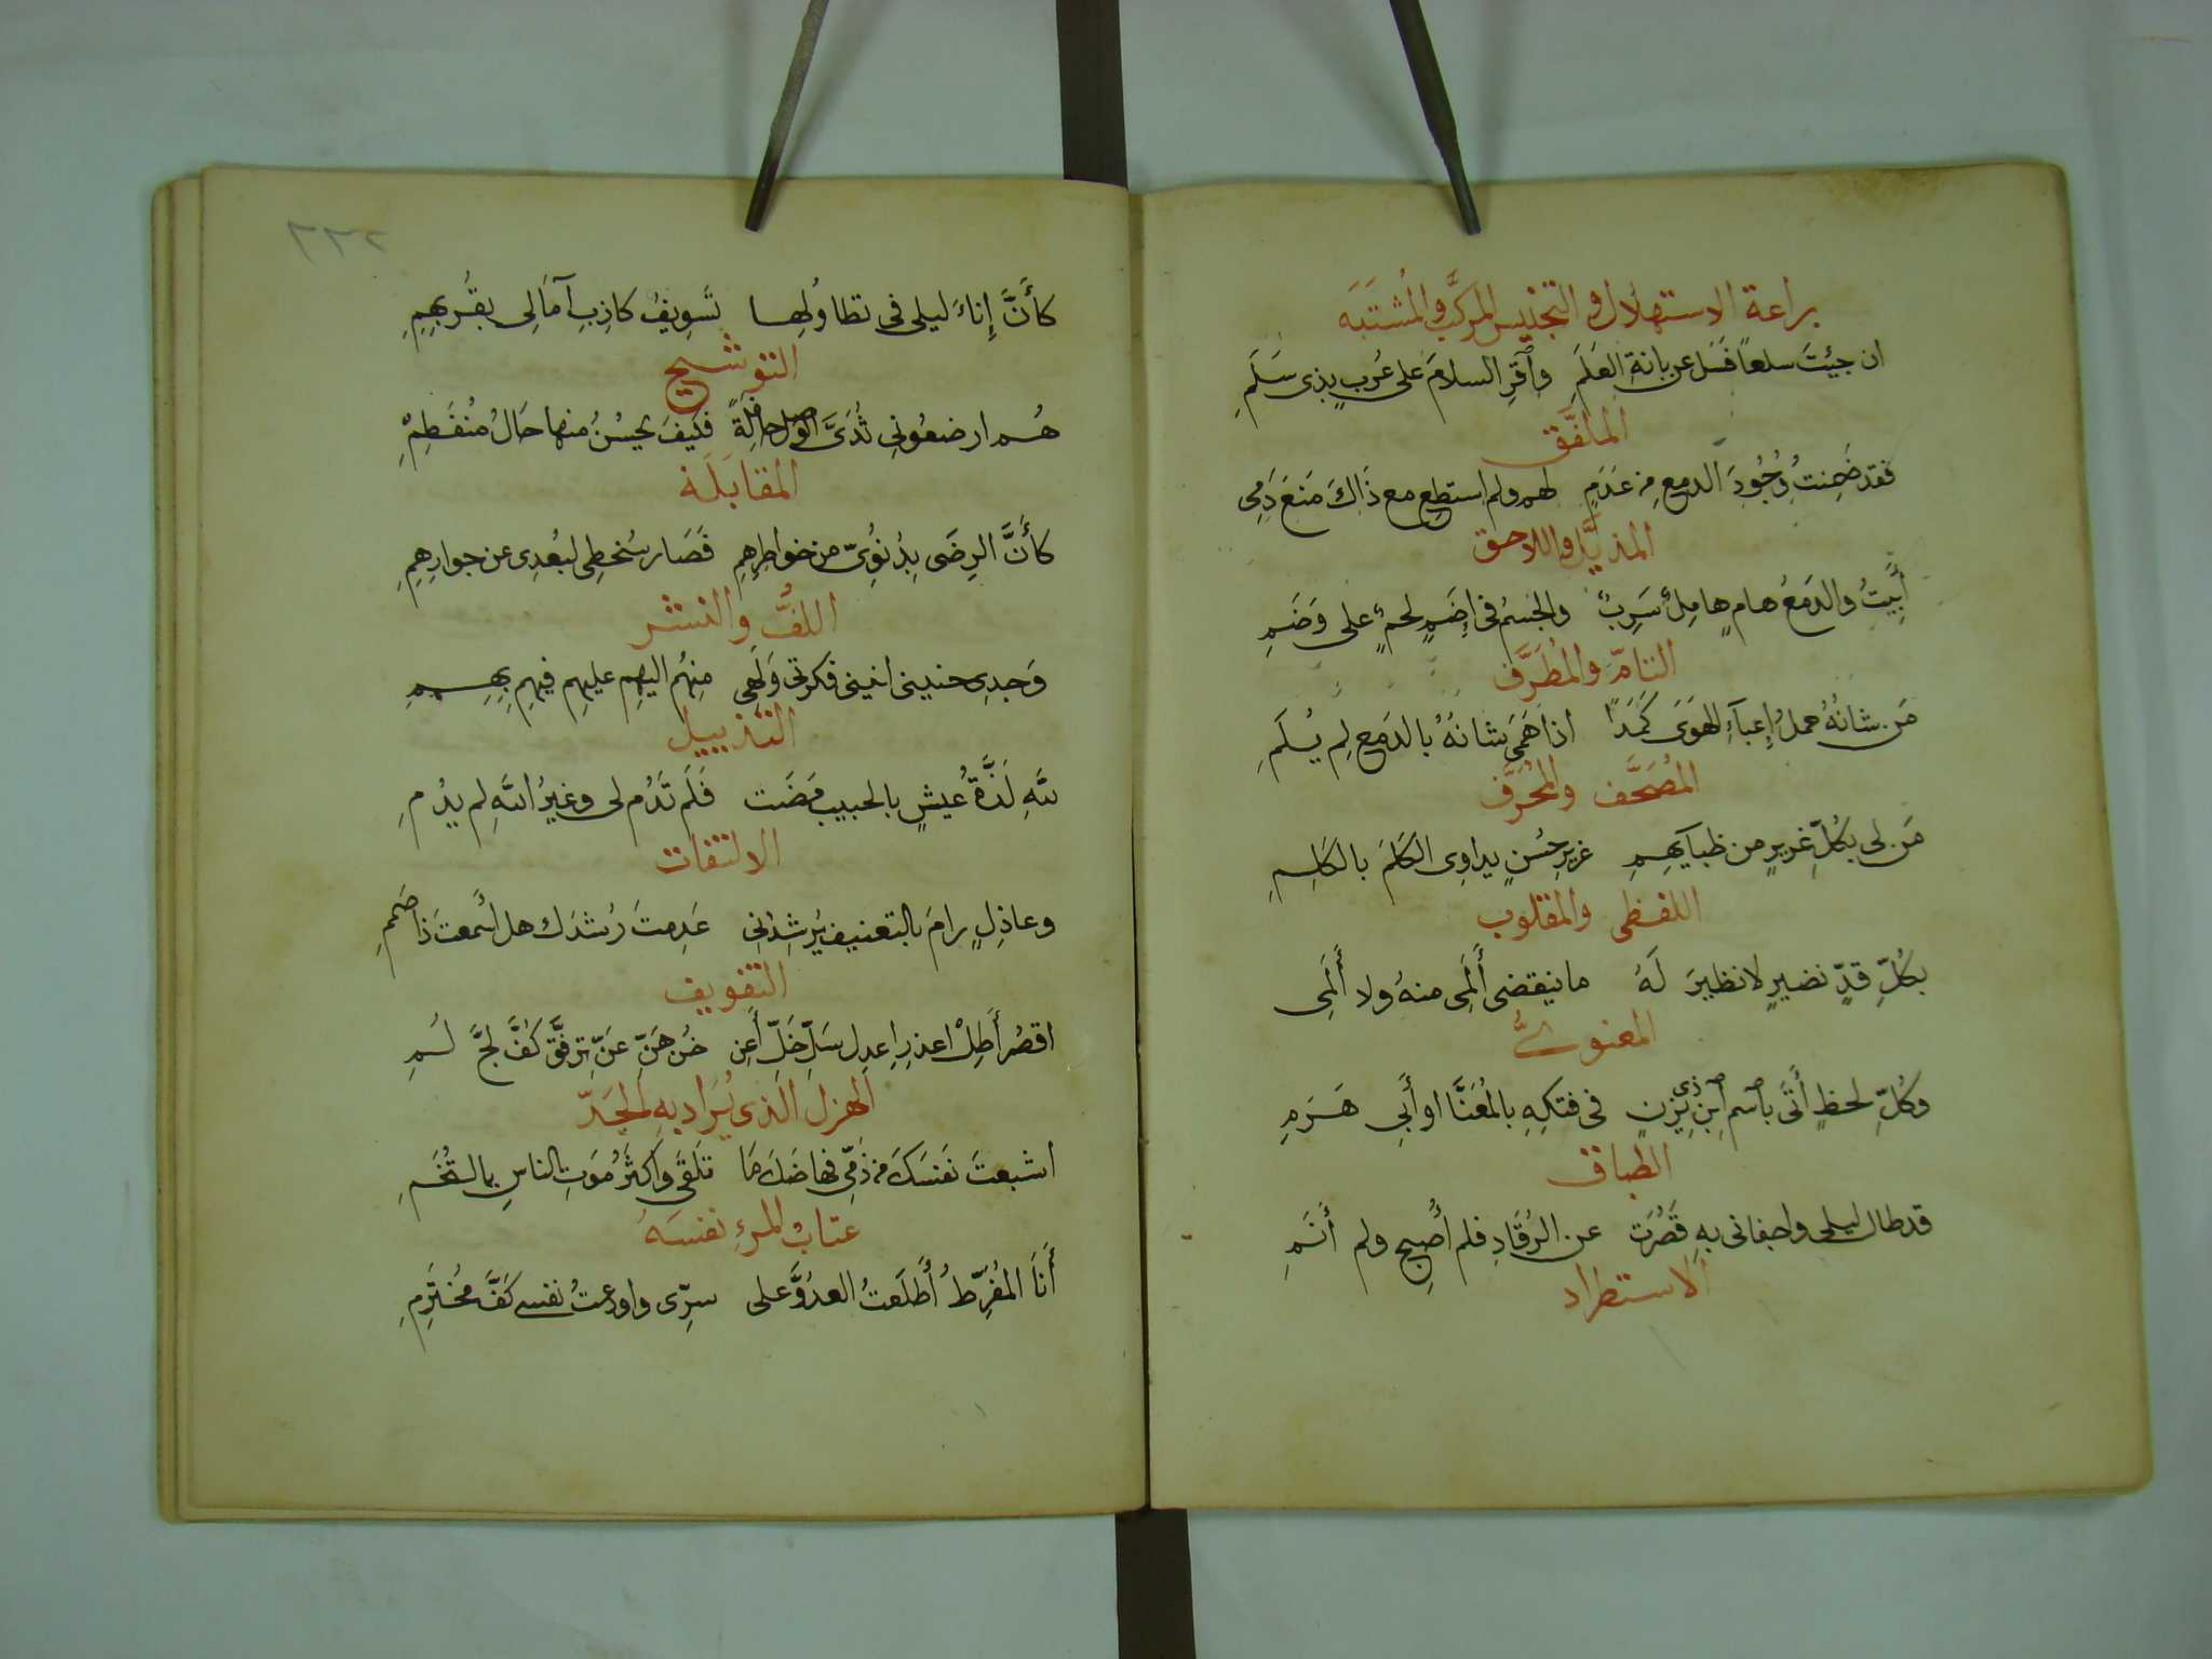 براعة الاستهلال والتجنيس المركَّب والمُشتَبَه
ان جئِتَ سلعاً فَسَل عن بانةِ العَلَمِ وآقرِ السلامَ على عُربٍ بذى سَلَمِ
الملفَّق
فقد ضَمِنتُ وُجُودَ الدمعِ من عَدَمٍ لهم ولم استطِع مع ذَاكَ مَنعَ دَمِى
المذيَّل واللاحق
أَبِيتُ والدَمعُ هامٍ هامِلٌ سَرِبٌ والجسمُ فى إِضَمٍ لحمٌ على وَضَمِ
التامّ والمُطَرَّف
مَن شانُهُ حملُ إِعبآءِ الهوَى كَمَدًا اذا هَمَى شانُهُ بالدَمعِ لم يُلَمِ
المُصَحَّف والمُحَرَّف
مَن لى بكُلِّ غريرٍ من ظبآيهِمِ عزيزِ حُسنٍ يداوِى الكَلمَ بالكَلِمِ
اللفظى والمقلوب
بكُلِّ قدٍّ نضيرٍ لا نظيرَ لَهُ ما ينقضى أَمَلِى منهُ ولا أَلَمِى
المعنوىُّ
وكُلِّ لحظٍ أَتَى بآسمِ آبنِ ذى يَزَنٍ فى فتكِهِ بالمُعَنَّا او أَبِى هَرَمِ
الطباق
قد طال ليلى واجفانى بهِ قَصُرَت عن الرُقَادِ فلم أُصبِح ولم أَنَمِ
الاستطراد
٢٢٦
كأَنَّ إِناءَ ليلى فى تطاوُلِها تَسويفُ كاذِبِ آمَالِى بقُربِهِمِ
التوشيح
هُم ارضعُونِى ثُدَىَّ الوصل حافلةً فكيفَ يحسُنُ منها حَالُ مُنفَطِمِ
المقابَلَة
كأَنَّ الرِضَى بِدُنُوِّى من خواطِرِهِمِ فَصَار سُخطِى لبُعدِى عن جوارِهِمِ
اللفُّ والنشر
وَجدِى حنينى انينى فكرتى وَلَهِى مِنهُم اليهِم عليهِم فيهِمِ بِهِمِ
التذييل
للهِ لَذَّةُ عيشٍ بالحبيبِ مَضَت فَلَم تَدُم لى وغيرُ اللهِ لم يدُمِ
الالتفات
وعاذِلٍ رامَ بالتعنيفِ يُرشِدُنِى عَدِمتَ رُشدَك هل اسمعتَ ذا صَمَمِ
التفويف
اقصُر أَطِلْ اعذرِ اعدِل سَلِّ خَلِّ أَعِن خُن هَنِّ عَنِّ ترفَّق كُفَّ لجَّ لُمِ
الهزل الذى يُرَاد بهِ الجَدّ
اشبعتَ نَفسَكَ من ذَمِّى فهاضَكَ مَا تلقَى واكثَرُ مَوتِ الناسِ بالتُخَمِ
عتابُ المرءِ نفسَهُ
أَنَا المُفَرِّطُ أَطلَعتُ العدُوَّ على سرِّى واودعتُ نفسى كَفَّ مُختَرِمِ